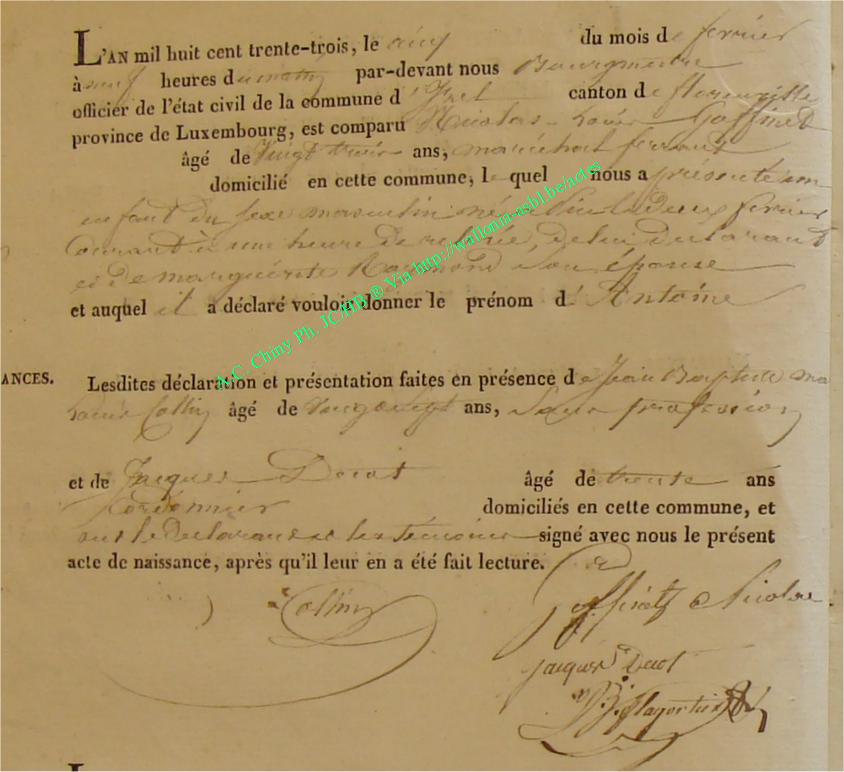 L'AN mil huit cent trente-trois, le cinq du mois de fevrier
à neuf heures du matin par-devant nous Bourgmestre
officier de l'état civil de la commune d'Izel canton de florenville
province de Luxembourg, est comparu Nicolas Louis Goffinet
âgé de vingt trois ans, maréchal ferrant
domicilié en cette commune, lequel nous a présenté un
enfant du sexe masculin né le deux fevrier
Courant à une heure de relevée, de lui declarant
et de marguerite Raymond son épouse
et auquel il a déclaré vouloir donner le prénom d'Antoine
A.C. Chiny Ph. JCAHR® Via http://wallonia-asbl.be/actes
ANCES. Lesdites déclaration et présentation faites en présence de Jean Baptiste
Louis Collin âgé de vingt sept ans, Sans profession
et de Jacques Decot âgé de trente ans
Cordonnier domiciliés en cette commune, et
ont le declarant et les temoins signé avec nous le présent
acte de naissance, après qu'il leur en a été fait lecture.
Collin
goffinet Nicolas
jacques Decot